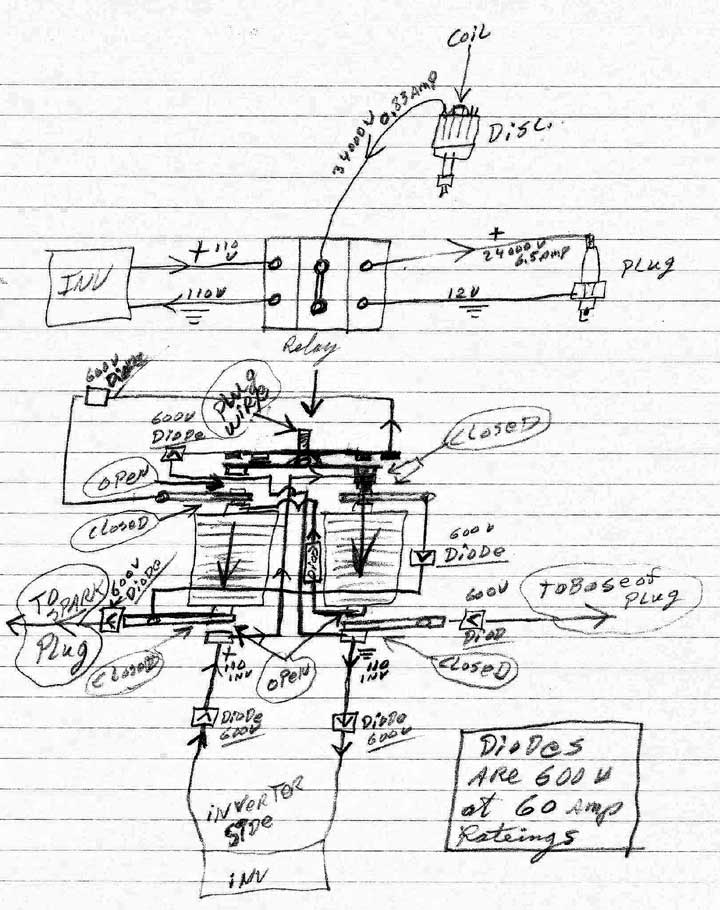 COIL
34000V 0.33 AMP
DISt.
+ 110
V
INV
110V
+
24000V
6.5 AMP
Plug
12V
Relay
600V
Diode
PLUG
WIRE
600V
DioDe
CLOSED
OPEN
CLOSED
600V
DioDe
DioD
600V
DioDe
TO
SPARK
Plug
600V
DioD
To Base of
Plug
CLOSED
OPEN
CLOSED
+
110
INV
110
INV
DioDe
600V
DioDe
600V
iNVERTER
SiDe
iNV
DioDes
ARE 600 V
at 60 Amp
Rateings